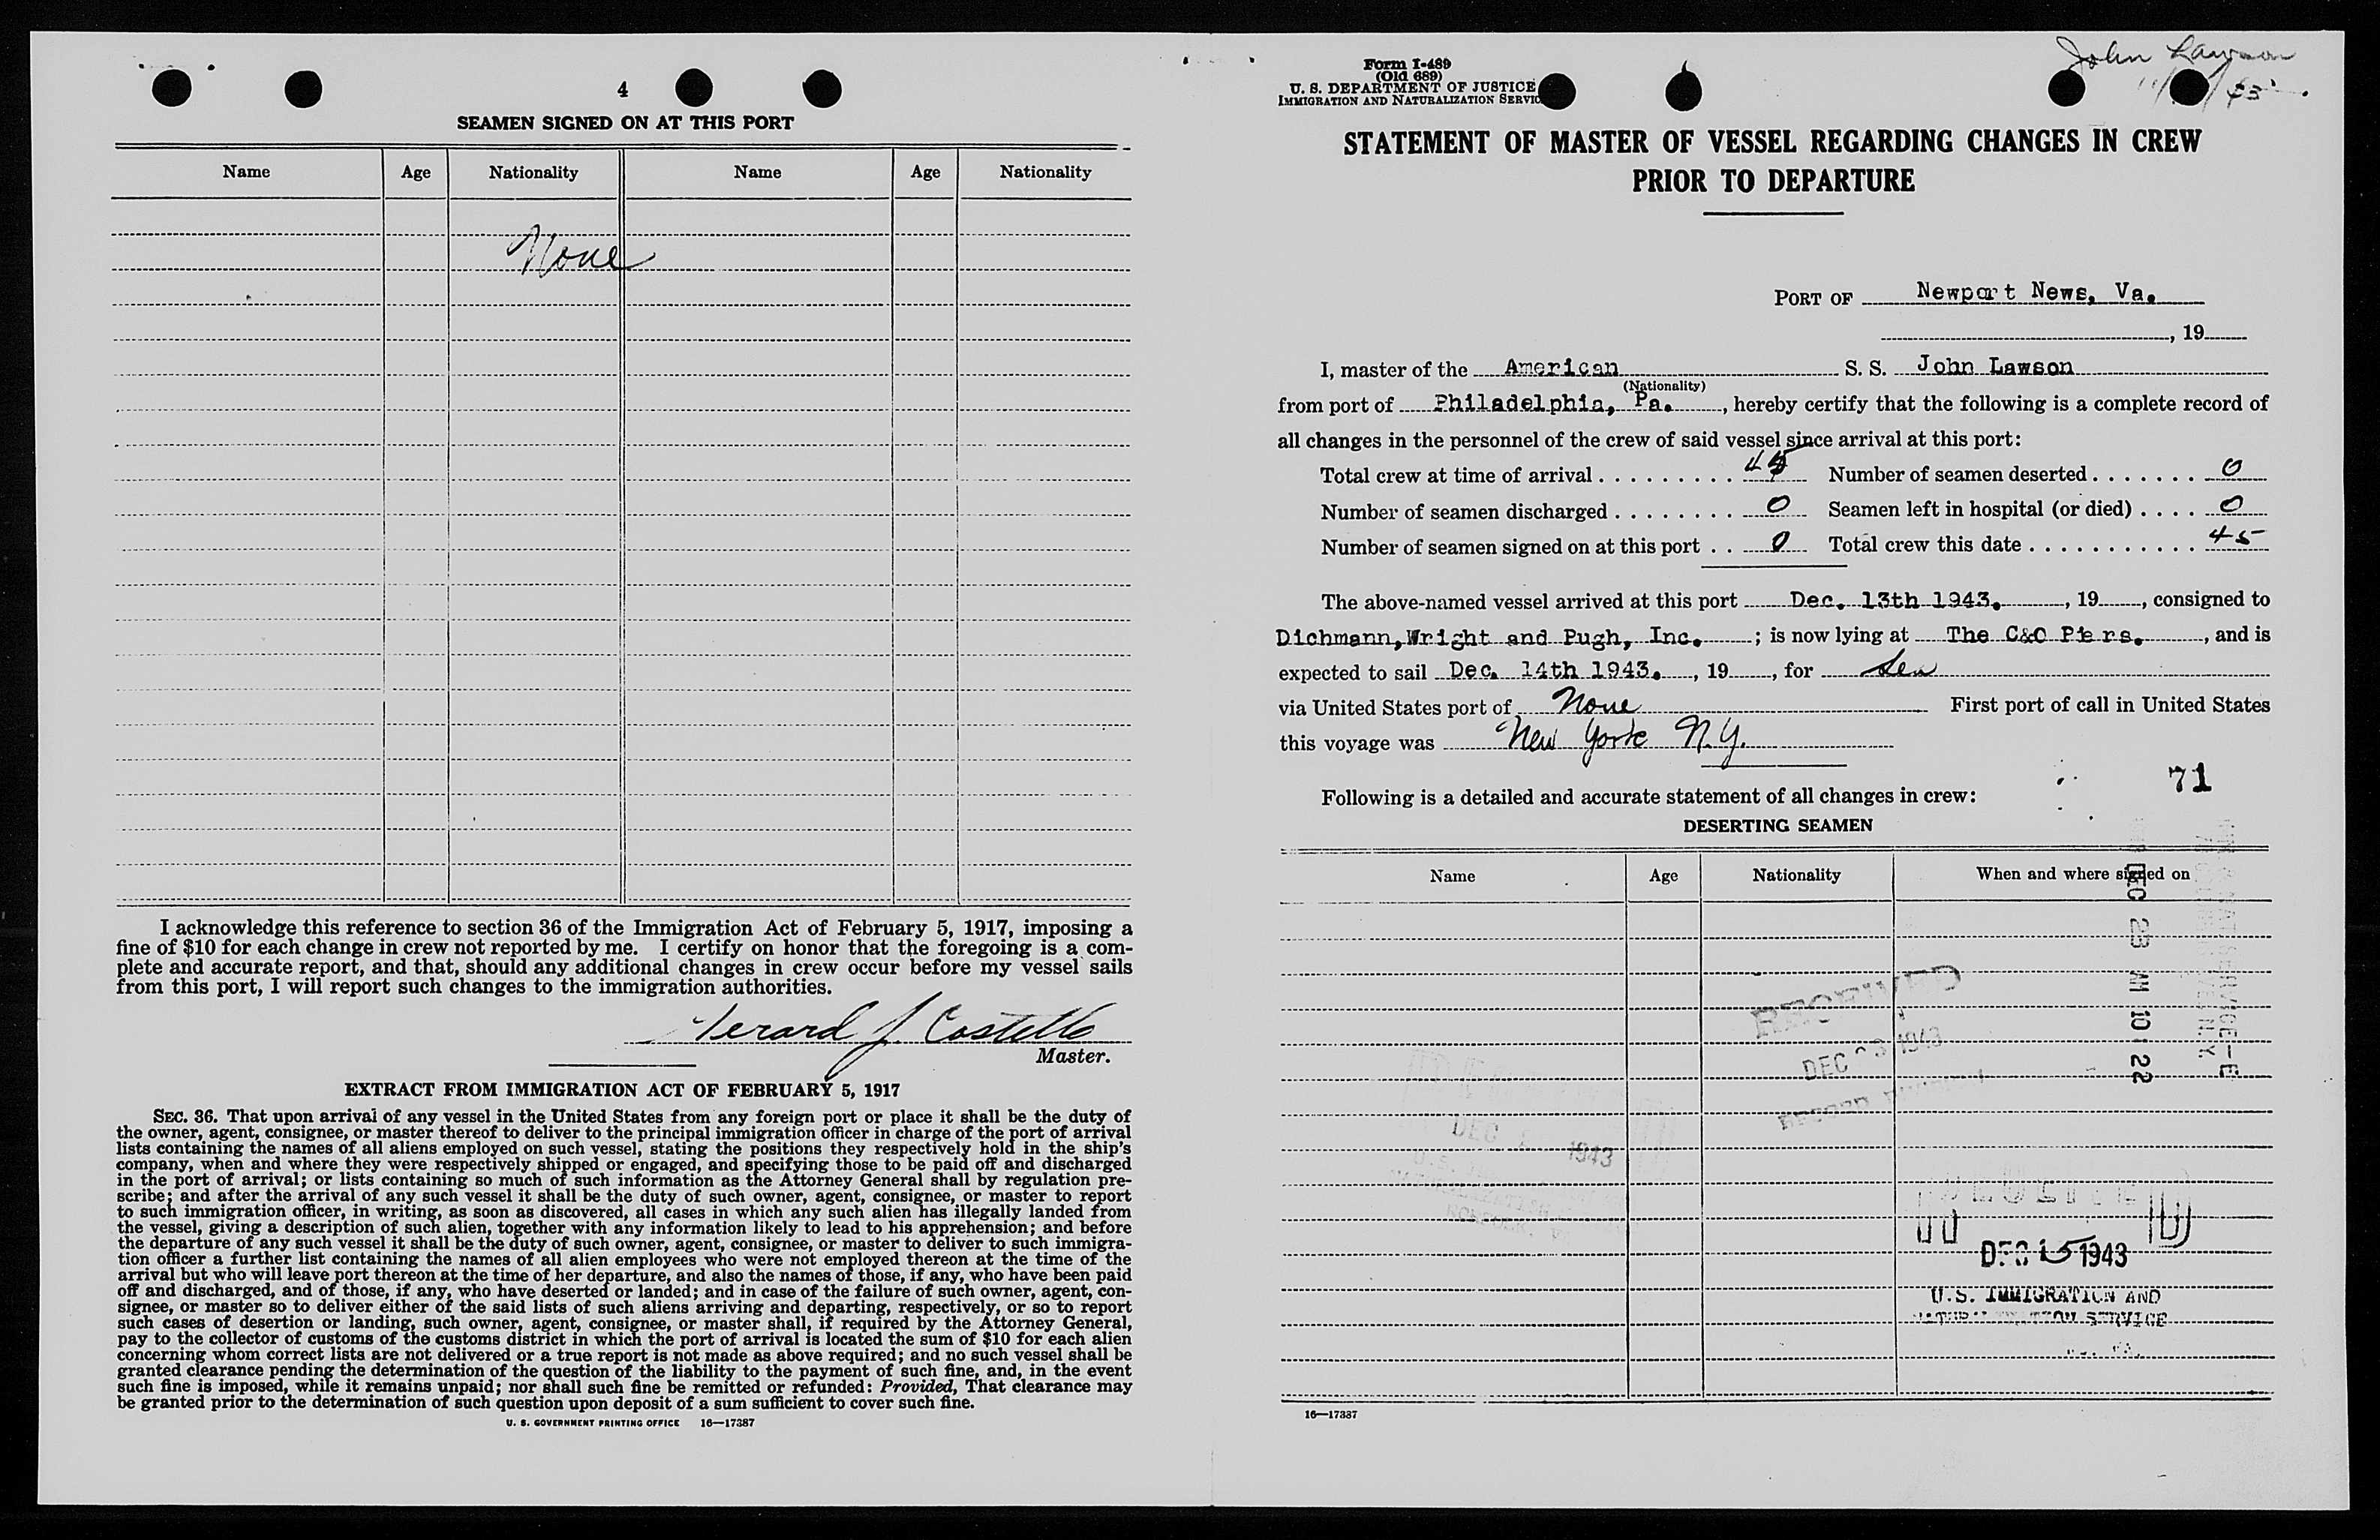 4
SEAMEN SIGNED ON AT THIS PORT
Name Age Nationality Name Age Nationality
None
I acknowledge this reference to section 36 of the Immigration Act of February 5, 1917, imposing a
fine of $10 for each change in crew not reported by me. I certify on honor that the foregoing is a com-
plete and accurate report, and that, should any additional changes in crew occur before my vessel sails
from this port, I will report such changes to the immigration authorities.
Gerard J Costello
Master.
EXTRACT FROM IMMIGRATION ACT OF FEBRUARY 5, 1917
SEC. 36. That upon arrival of any vessel in the United States from any foreign port or place it shall be the duty of
the owner, agent, consignee, or master thereof to deliver to the principal immigration officer in charge of the port of arrival
lists containing the names of all aliens employed on such vessel, stating the positions they respectively hold in the ship's
company, when and where they were respectively shipped or engaged, and specifying those to be paid off and discharged
in the port of arrival; or lists containing so much of such information as the Attorney General shall by regulation pre-
scribe; and after the arrival of any such vessel it shall be the duty of such owner, agent, consignee, or master to report
to such immigration officer, in writing, as soon as discovered, all cases in which any such alien has illegally landed from
the vessel, giving a description of such alien, together with any information likely to lead to his apprehension; and before
the departure of any such vessel it shall be the duty of such owner, agent, consignee, or master to deliver to such immigra-
tion officer a further list containing the names of all alien employees who were not employed thereon at the time of the
arrival but who will leave port thereon at the time of her departure, and also the names of those, if any, who have been paid
off and discharged, and of those, if any, who have deserted or landed; and in case of the failure of such owner, agent, con-
signee, or master so to deliver either of the said lists of such aliens arriving and departing, respectively, or so to report
such cases of desertion or landing, such owner, agent, consignee, or master shall, if required by the Attorney General,
pay to the collector of customs of the customs district in which the port of arrival is located the sum of $10 for each alien
concerning whom correct lists are not delivered or a true report is not made as above required; and no such vessel shall be
granted clearance pending the determination of the question of the liability to the payment of such fine, and, in the event
such fine is imposed, while it remains unpaid; nor shall such fine be remitted or refunded: Provided, That clearance may
be granted prior to the determination of such question upon deposit of a sum sufficient to cover such fine.
U. S. GOVERNMENT PRINTING OFFICE 16—17387
John Lawson
Form I-489
(Old 689)
U. S. DEPARTMENT OF JUSTICE
IMMIGRATION AND NATURALIZATION SERVIC
STATEMENT OF MASTER OF VESSEL REGARDING CHANGES IN CREW
PRIOR TO DEPARTURE
PORT OF Newport News, Va.
, 19
I, master of the American S. S. John Lawson
(Nationality)
from port of Philadelphia, Pa. , hereby certify that the following is a complete record of
all changes in the personnel of the crew of said vessel since arrival at this port:
Total crew at time of arrival 45 Number of seamen deserted 0
Number of seamen discharged 0 Seamen left in hospital (or died) 0
Number of seamen signed on at this port 0 Total crew this date 45
The above-named vessel arrived at this port Dec. 13th 1943. , 19 , consigned to
Dichmann, Wright and Pugh, Inc. ; is now lying at The C&O Piers. , and is
expected to sail Dec. 14th 1943. , 19 , for Sea
via United States port of None First port of call in United States
this voyage was New York N.Y.
71
Following is a detailed and accurate statement of all changes in crew:
DESERTING SEAMEN
Name Age Nationality When and where signed on
DEC 23 AM 10:22
RECEIVED
DEC 1943
DEC 1943
DEC 15 1943
U.S. IMMIGRATION AND
NATURALIZATION SERVICE
16—17387